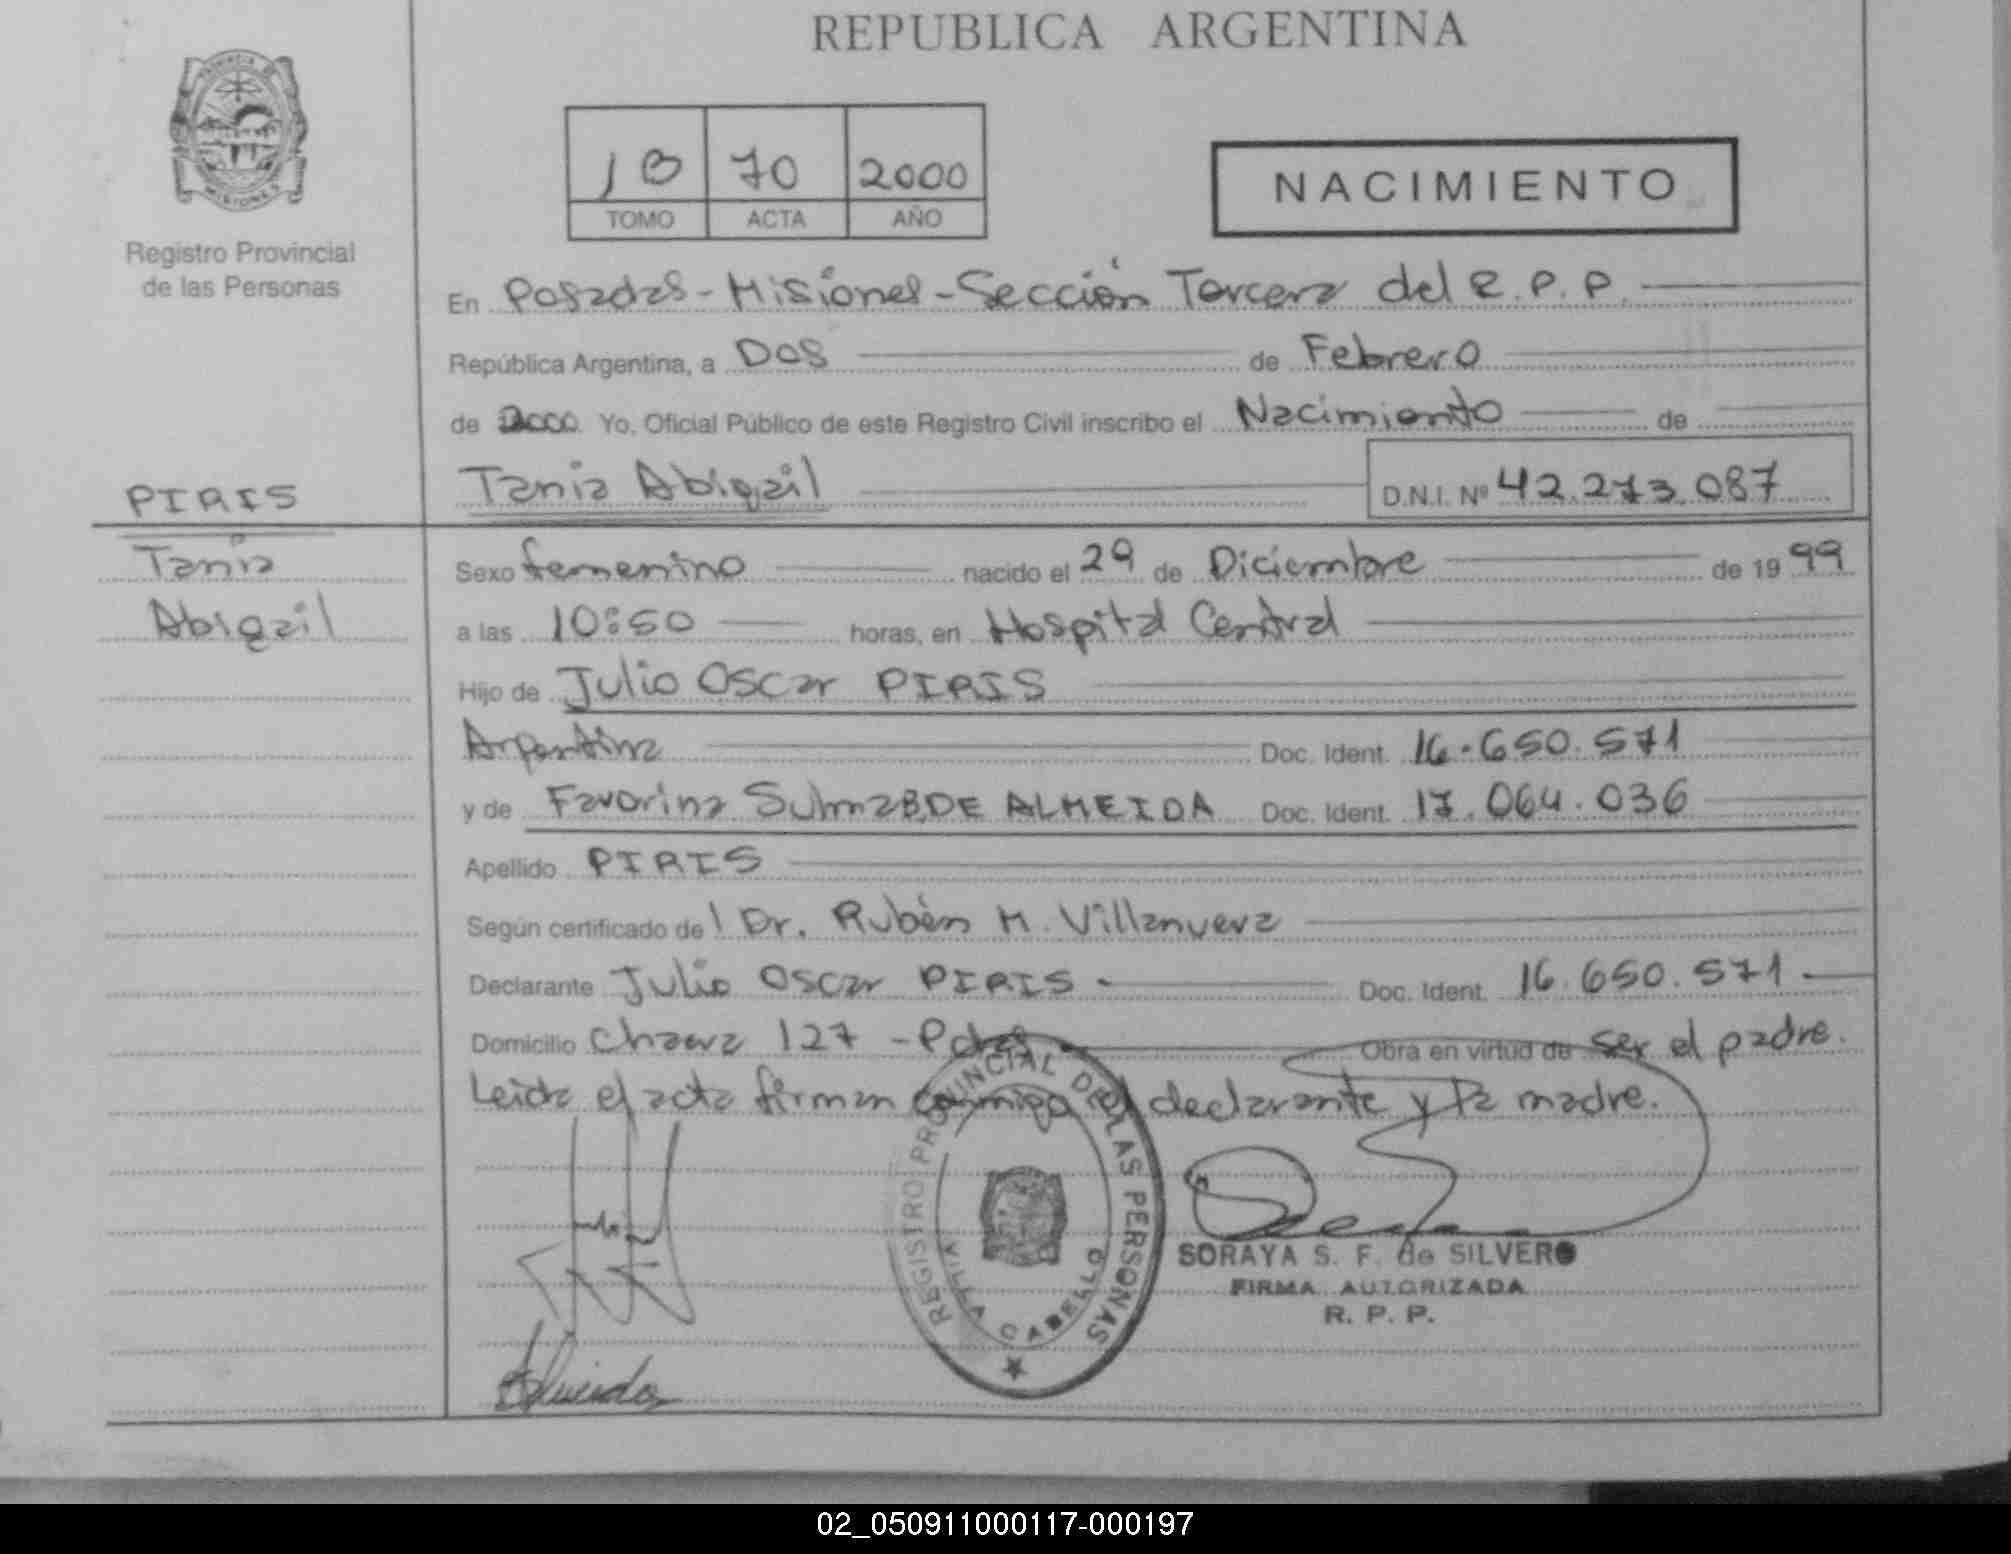 REPUBLICA ARGENTINA
PROVINCIA DE
MISIONES
Registro Provincial
de las Personas
70 2000
TOMO ACTA AÑO
NACIMIENTO
En Posadas - Misiones - Sección Tercera del R.P.P.
República Argentina, a Dos de Febrero
de 2000 Yo, Oficial Público de este Registro Civil inscribo el Nacimiento de
Tania Abigail D.N.I. Nº 42.273.087
PIRIS
Tania
Abigail
Sexo femenino nacido el 29 de Diciembre de 19 99
a las 10:50 horas, en Hospital Central
Hijo de Julio Oscar PIRIS
Argentina Doc. Ident. 16.650.571
y de Favorina DE ALMEIDA Doc. Ident. 17.064.036
Apellido PIRIS
Según certificado de l Dr. Rubén M. Villanueva
Declarante Julio Oscar PIRIS - Doc. Ident. 16.650.571.
Domicilio 127 - Pdas Obra en virtud de ser el padre.
Leida el acta firman conmigo el declarante y la madre.
REGISTRO PROVINCIAL DE LAS PERSONAS
VILLA CABELLO
SORAYA S. F. de SILVERO
FIRMA AUTORIZADA
R. P. P.
Almeida
02_050911000117-000197